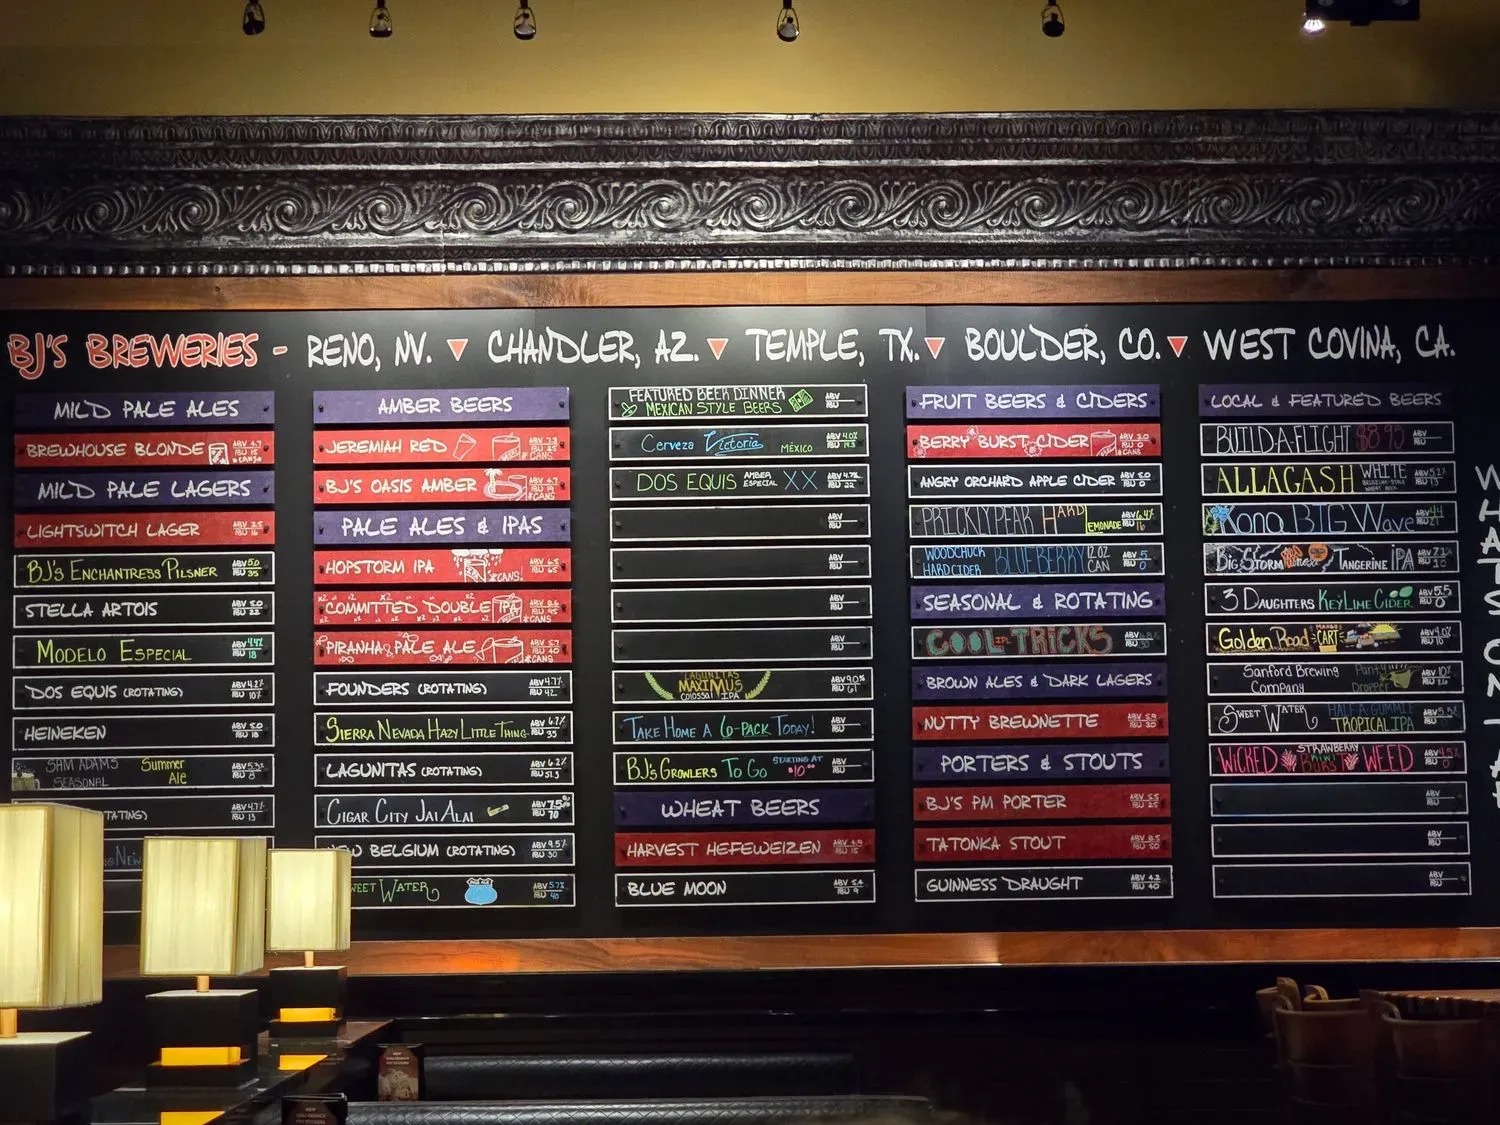 BJ'S BREWERIES - RENO, NV. ▼ CHANDLER, AZ. ▼ TEMPLE, TX. ▼ BOULDER, CO. ▼ WEST COVINA, CA.
MILD PALE ALES
BREWHOUSE BLONDE ABV 4.7 IBU 15 *CANS*
MILD PALE LAGERS
LIGHTSWITCH LAGER ABV 3.5 IBU 16
BJ'S ENCHANTRESS PILSNER ABV 5.0 IBU 35
STELLA ARTOIS ABV 5.0 IBU 22
MODELO ESPECIAL ABV 4.4% IBU 18
DOS EQUIS (ROTATING) ABV 4.2% IBU 10%
HEINEKEN ABV 5.0 IBU 18
SAM ADAMS SEASONAL Summer Ale ABV 5.3% IBU 8
TATING) ABV 4.7% IBU 13
NEW
AMBER BEERS
JEREMIAH RED ABV 7.3 IBU 25 *CANS
BJ'S OASIS AMBER ABV 4.7 IBU 19 *CANS
PALE ALES & IPAS
HOPSTORM IPA ABV 6.5 IBU 65 *CANS!
COMMITTED DOUBLE IPA ABV 8.6 IBU 95
PIRANHA PALE ALE ABV 5.7 IBU 40 *CANS
FOUNDERS (ROTATING) ABV 4.7% IBU 42
SIERRA NEVADA HAZY LITTLE THING ABV 6.7% IBU 35
LAGUNITAS (ROTATING) ABV 6.2% IBU 51.5
CIGAR CITY JAI ALAI ABV 7.5% IBU 70
NEW BELGIUM (ROTATING) ABV 9.5% IBU 30
WEET WATER PALE ALE ABV 5.7% IBU 40
FEATURED BEER DINNER
MEXICAN STYLE BEERS ABV IBU
Cerveza Victoria MÉXICO ABV 4.0% IBU 14.3
DOS EQUIS AMBER ESPECIAL XX ABV 4.7% IBU 22
ABV IBU
ABV IBU
ABV IBU
ABV IBU
LAGUNITAS
MAXIMUS
COLOSSAL IPA ABV 9.0% IBU 61
TAKE HOME A 6-PACK TODAY! ABV IBU
BJ'S GROWLERS TO GO STARTING AT $10 ABV IBU
WHEAT BEERS
HARVEST HEFEWEIZEN ABV 4.9 IBU 15
BLUE MOON ABV 5.4 IBU 9
FRUIT BEERS & CIDERS
BERRY BURST CIDER ABV 5.0 IBU 0
ANGRY ORCHARD APPLE CIDER ABV 5.0 IBU 0
PRICKLY PEAR HARD EMONADE ABV 6.4% IBU 16
WOODCHUCK HARD CIDER BLUEBERRY 12 OZ CAN ABV 5 IBU 0
SEASONAL & ROTATING
COOL IPL TRICKS ABV IBU
BROWN ALES & DARK LAGERS
NUTTY BREWNETTE ABV 5.9 IBU 30
PORTERS & STOUTS
BJ'S PM PORTER ABV 5.5 IBU 25
TATONKA STOUT ABV 8.5 IBU 50
GUINNESS DRAUGHT ABV 4.2 IBU 40
LOCAL & FEATURED BEERS
BUILD-A-FLIGHT $8.95 ABV IBU
ALLAGASH WHITE BELGIUM-STYLE WHEAT BEER ABV 5.2% IBU 13
Kona BIG Wave ABV 4.4 IBU 21
BIG STORM TANGERINE IPA ABV 7.1% IBU
3 DAUGHTERS KEY LIME CIDER ABV 5.5 IBU 0
Golden Road MANGO CART ABV 4.0% IBU 10
Sanford Brewing Company Panty Dropper ABV 10% IBU
SWEET WATER HALF-A-GUMMIE TROPICAL IPA ABV 5.5% IBU
WICKED STRAWBERRY KIWI BURST WEED ABV 4.5% IBU 0
ABV IBU
ABV IBU
ABV IBU
WHATS ON TAP